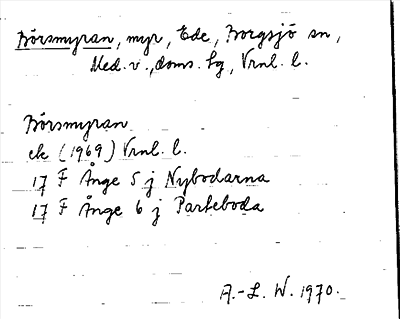 Börsmyran, myr, Ede, Borgsjö sn,
Med. v. doms. hg, Vrnl. l.
Börsmyran
ek (1969) Vrnl. l.
17 F Ånge 5 j Nybodarna
17 F Ånge 6 j Parteboda
A.-L. W. 1970.